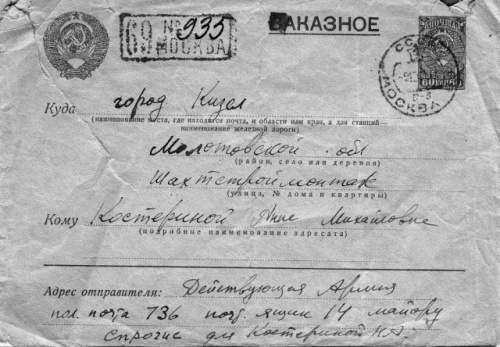 69 № 935
МОСКВА
ЗАКАЗНОЕ
ПОЧТА
МОСКВА
Куда город Кизел
(наименование места, где находится почта, и области или края, а для станций
наименование железной дороги)
Молотовской обл
(район, село или деревня)
Шахтстроймонтаж
(улица, № дома и квартиры)
Кому Костериной Анне Михайловне
(подробное наименование адресата)
Адрес отправителя: Действующая Армия
пол. почта 736 почт. ящик 14 майору
для Костериной